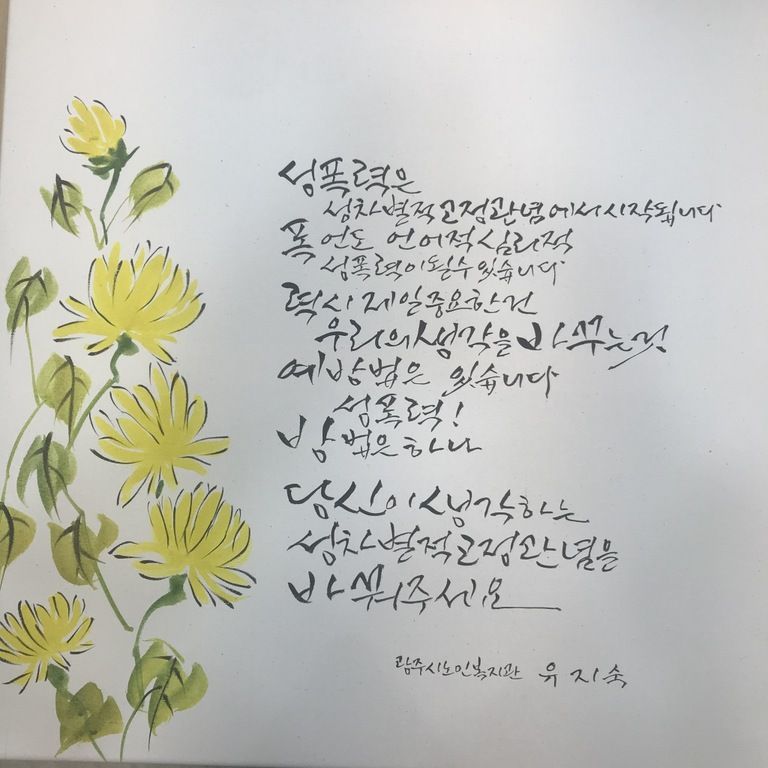 성폭력은
성차별적 고정관념에서 시작됩니다
폭언도 언어적 심리적
성폭력이 될 수 있습니다
력시 제일 중요한 건
우리의 생각을 바꾸는 것
예방법은 있습니다
성폭력!
방법은 하나
당신이 생각하는
성차별적 고정관념을
바꿔주세요
광주시노인복지관 유지숙